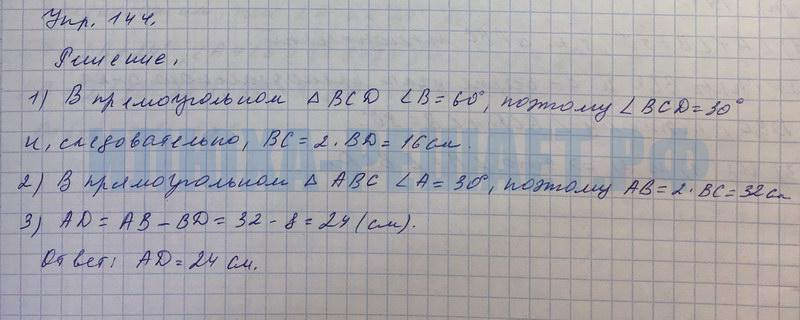 Упр. 144.
Решение.
1) В прямоугольном △ BCD ∠B = 60°, поэтому ∠BCD = 30°
и, следовательно, BC = 2 · BD = 16 см.
2) В прямоугольном △ ABC ∠A = 30°, поэтому AB = 2 · BC = 32 см
3) AD = AB − BD = 32 − 8 = 24 (см).
Ответ: AD = 24 см.